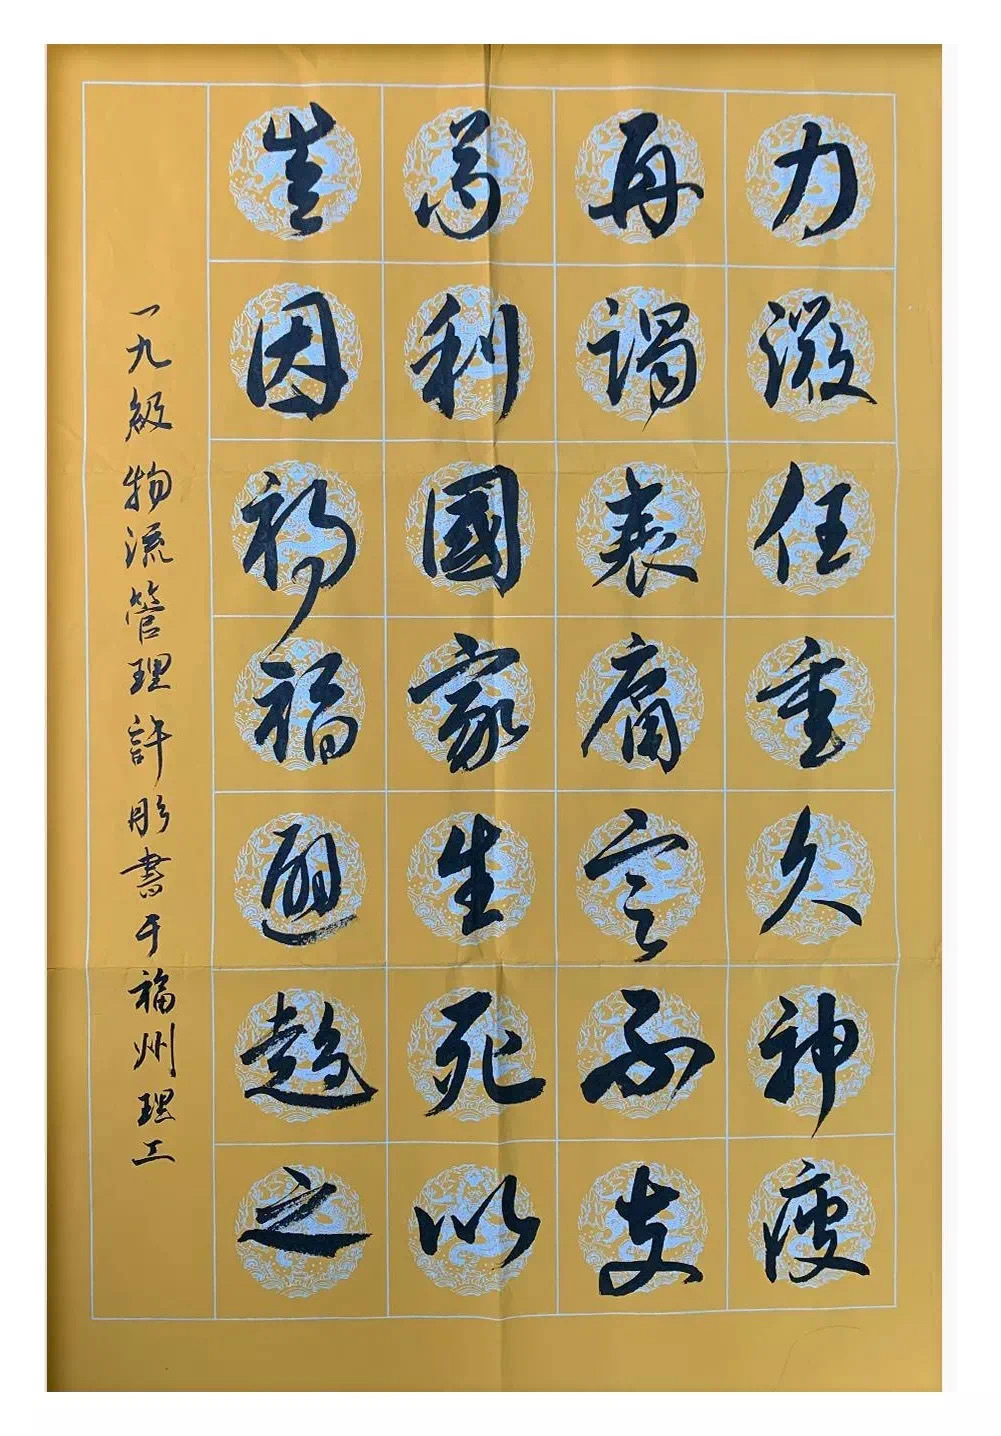 力微任重久神疲
再謁衰庸定不支
苟利國家生死以
豈因禍福避趨之
一九級物流管理許彤書于福州理工